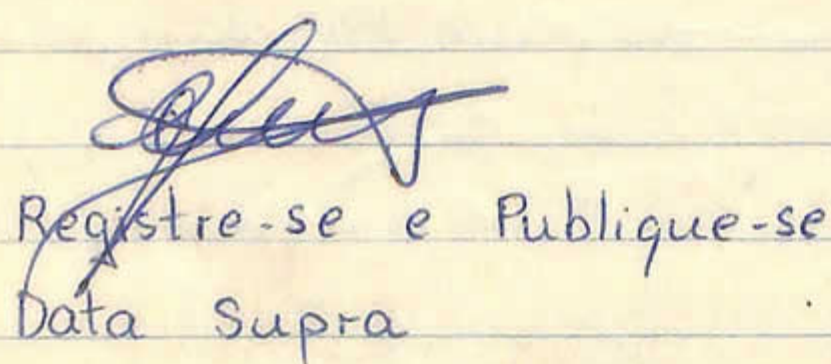 Registre-se e Publique-se
Data Supra